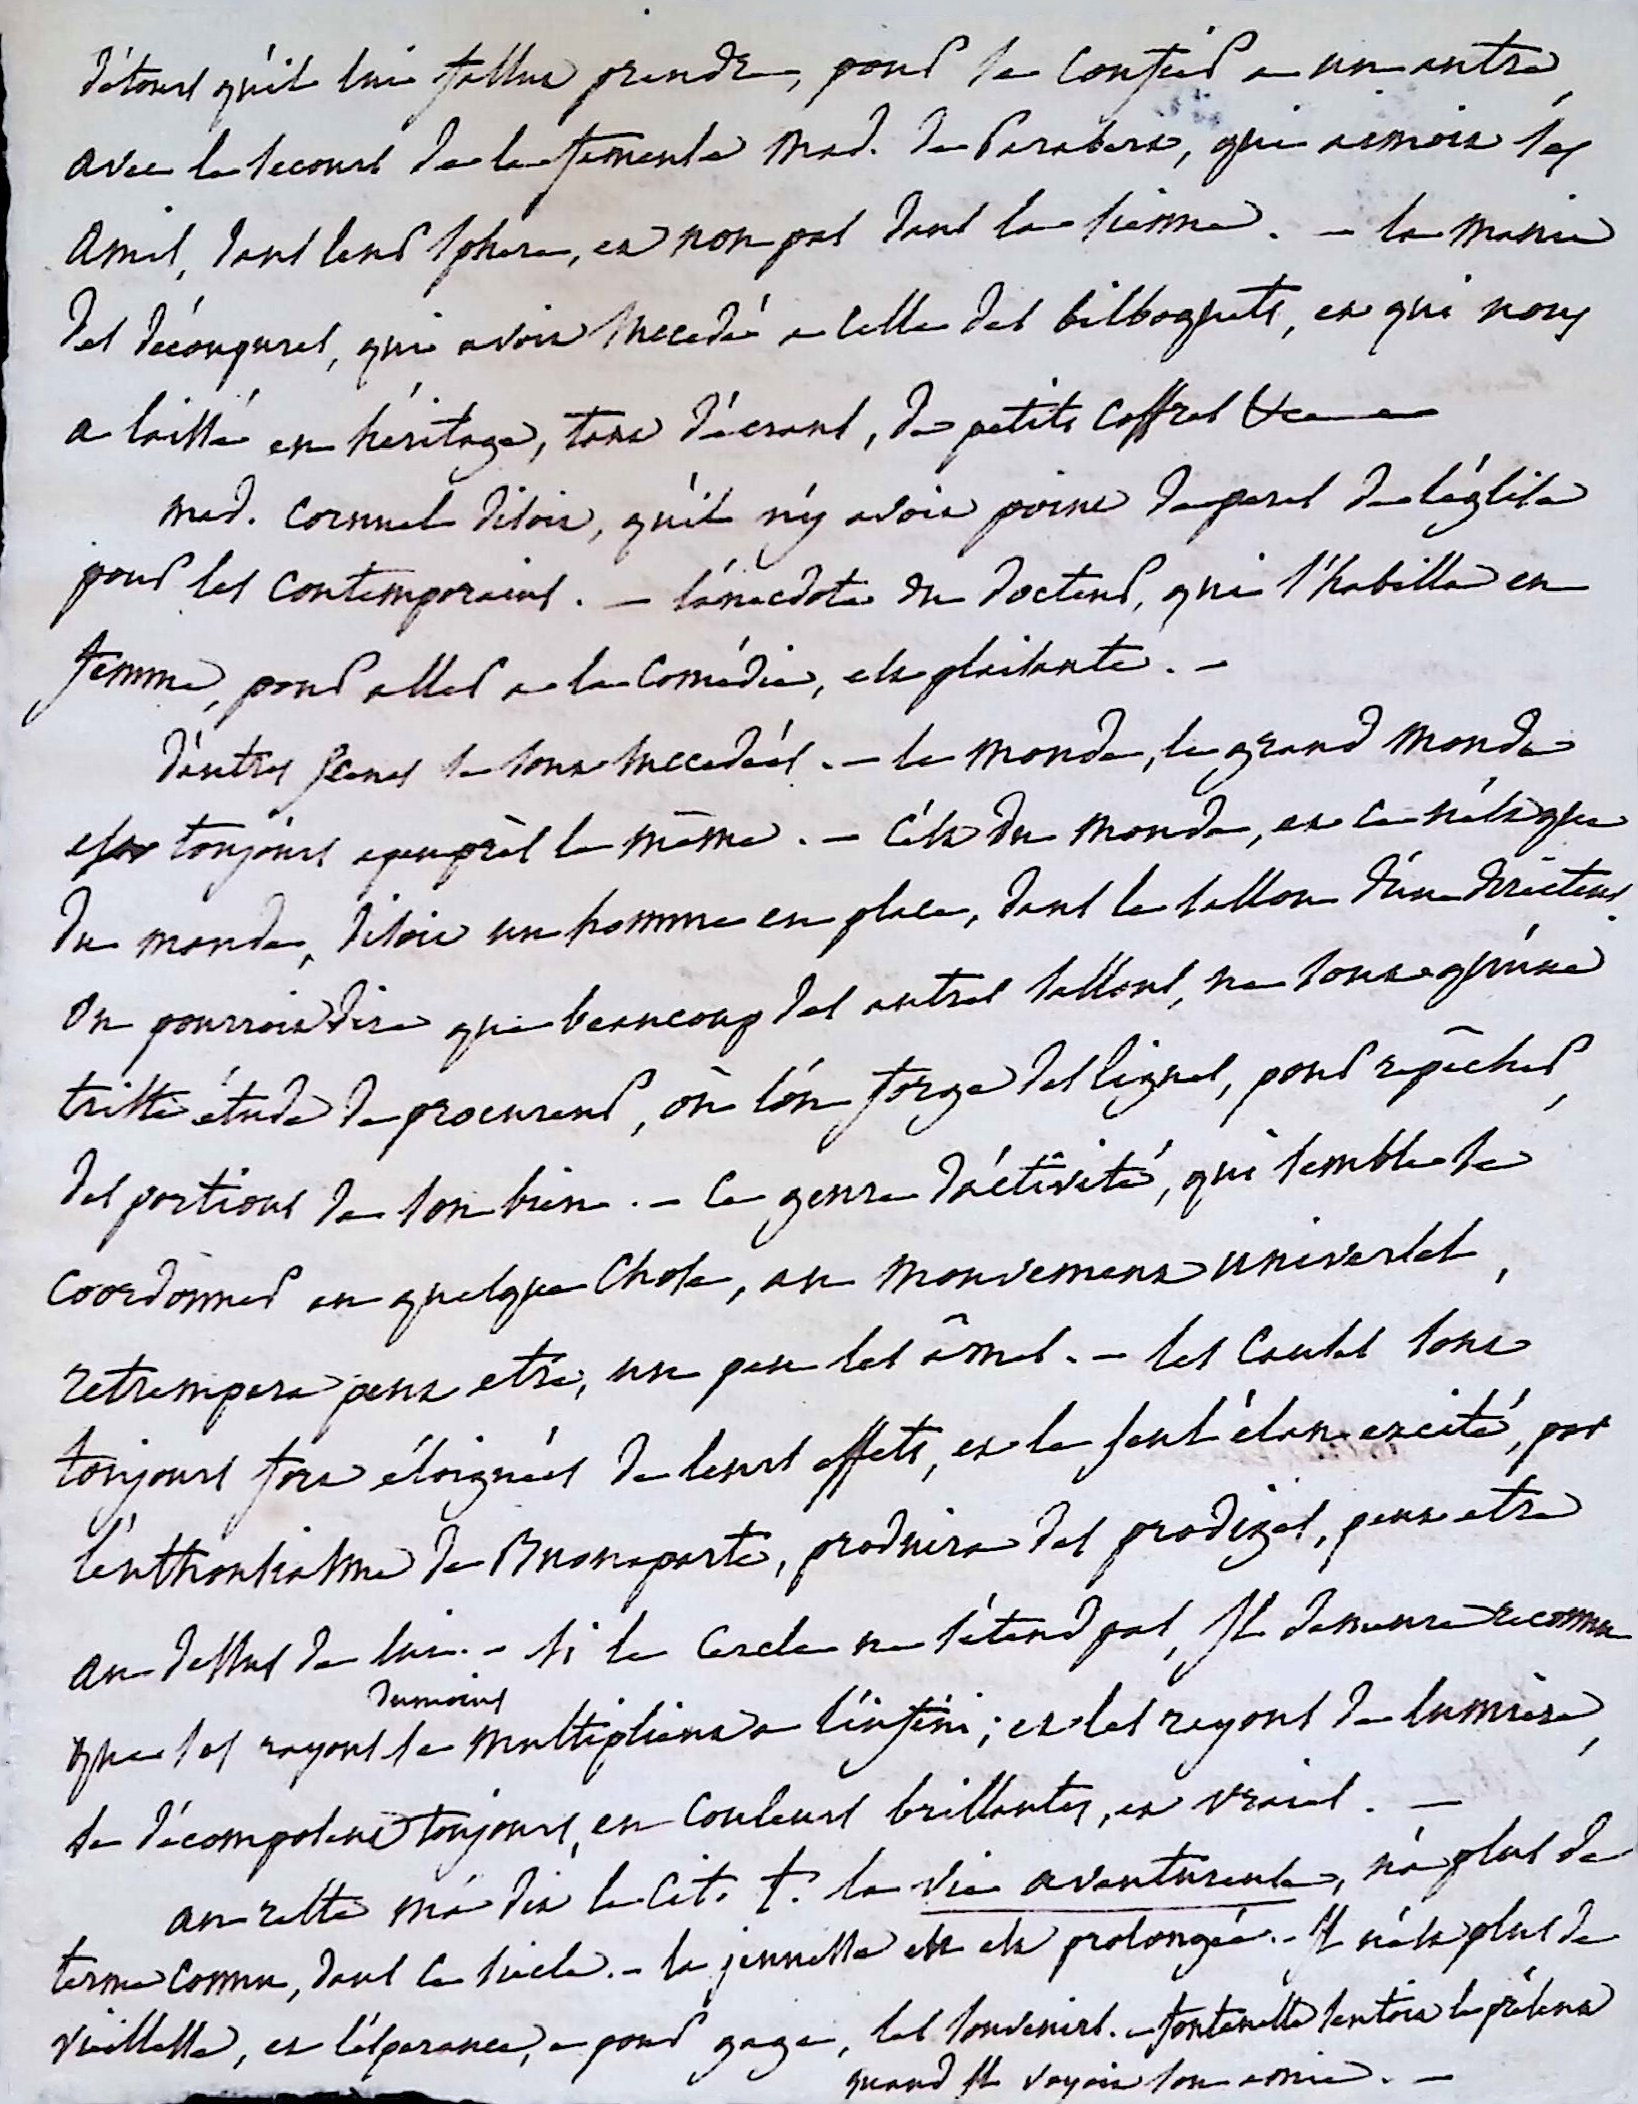 détours qu'il lui fallut prendre, pour le confier a un autre,
avec le secours de la fameuse mad. de Parabere, qui aimoit ses
amis, dans leur sphere, et non pas dans la sienne. – la manie
des découpures, qui avoit succedé a celle des bilboquets, et qui nous
a laissé en héritage, tant d'écrans, de petits coffres &c
mad. Cornuel disoit, qu'il n'y avoit point de peres de l'église
pour les contemporains. – l'anecdote du docteur, qui s'habilla en
femme, pour aller a la Comédie, est plaisante. –
d'autres scenes se sont succedées. – le monde, le grand monde
est toujours apeuprès le même. – C'est du monde, et ce n'est que
du monde, disoit un homme en place, dans le sallon d'un directeur.
on pourroit dire que beaucoup des autres sallons, ne sont qu'une
triste étude de procureur, où l'on forge des lignes, pour repêcher,
des portions de son bien. – Ce genre d'activité, qui semble se
coordonner en quelque chose, au mouvement universel,
retrempera peut etre, un peu les âmes. – les causes sont
toujours fort éloignées de leurs effets, et le seul élan excité, par
l'enthousiasme de Buonaparte, produira des prodiges, peut etre
au dessus de lui. – si le Cercle ne s'étend pas, Il demeure reconnu
que ses rayons se multiplient dumoins a l'infini; et les rayons de lumiere,
se décomposent toujours, en couleurs brillantes, et vraies. –
au reste m'a dit le Cit. T. la vie aventureuse, n'a plus de
terme connu, dans ce siecle. – la jeunesse est prolongée. – Il n'est plus de
vieillesse, et l'espérance, a pour gage, les souvenirs. – fontenelle sentoit le présent
quand Il voyoit son amie. –